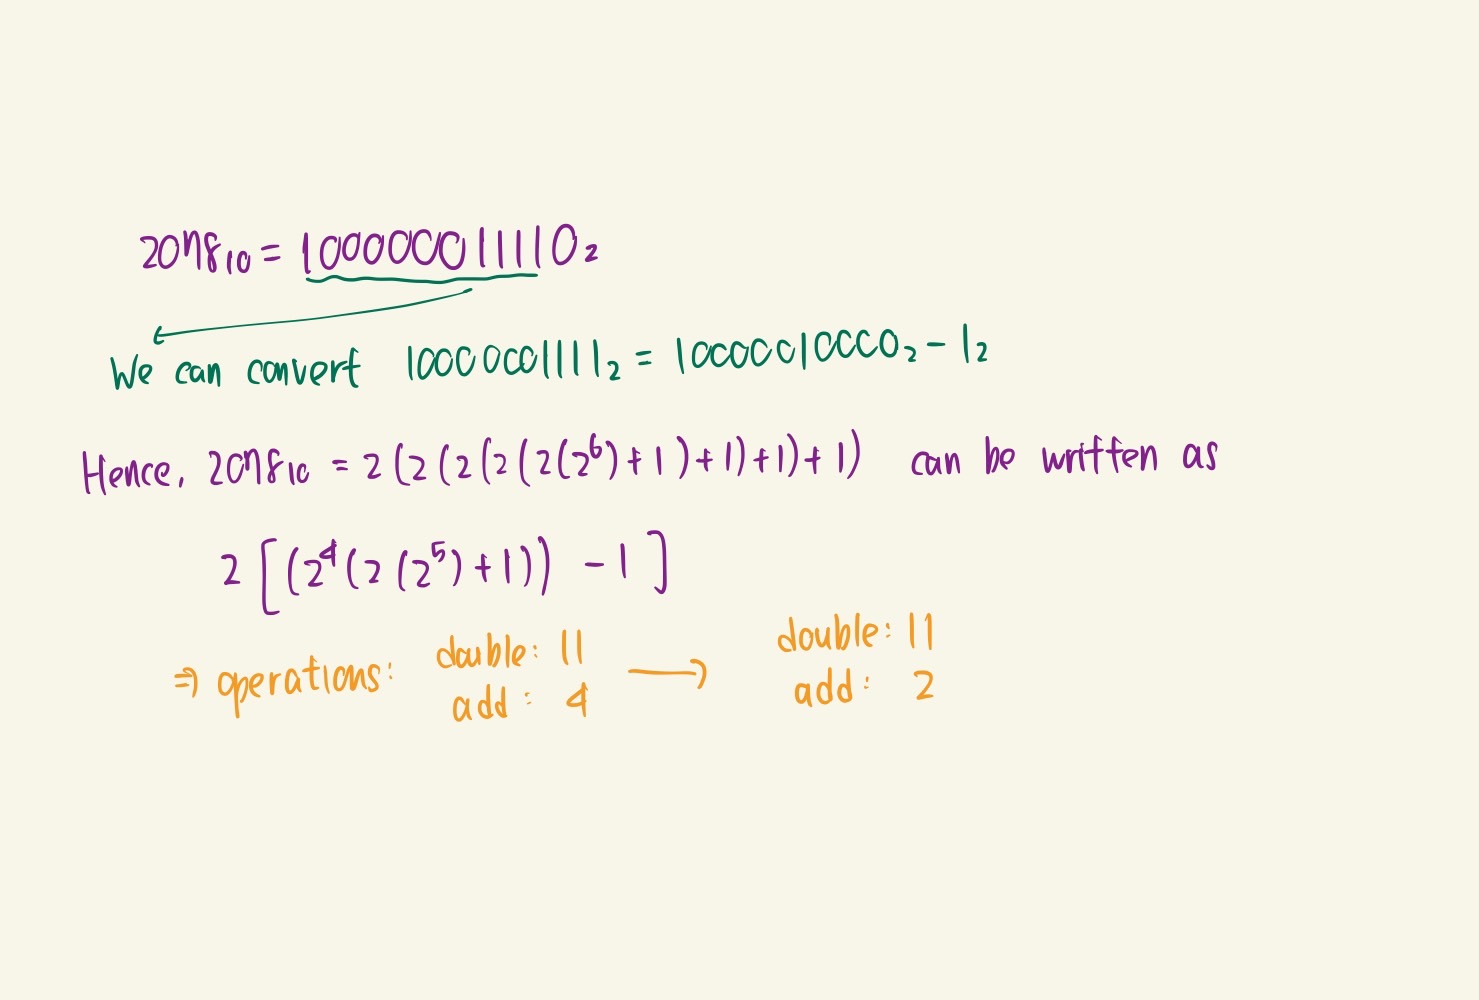 2078₁₀ = 100000011110₂
We can convert 10000001111₂ = 10000010000₂ - 1₂
Hence, 2078₁₀ = 2(2(2(2(2(2⁶)+1)+1)+1)+1) can be written as
2[(2⁴(2(2⁵)+1)) - 1]
⇒ operations: double: 11 → double: 11
add: 4 add: 2